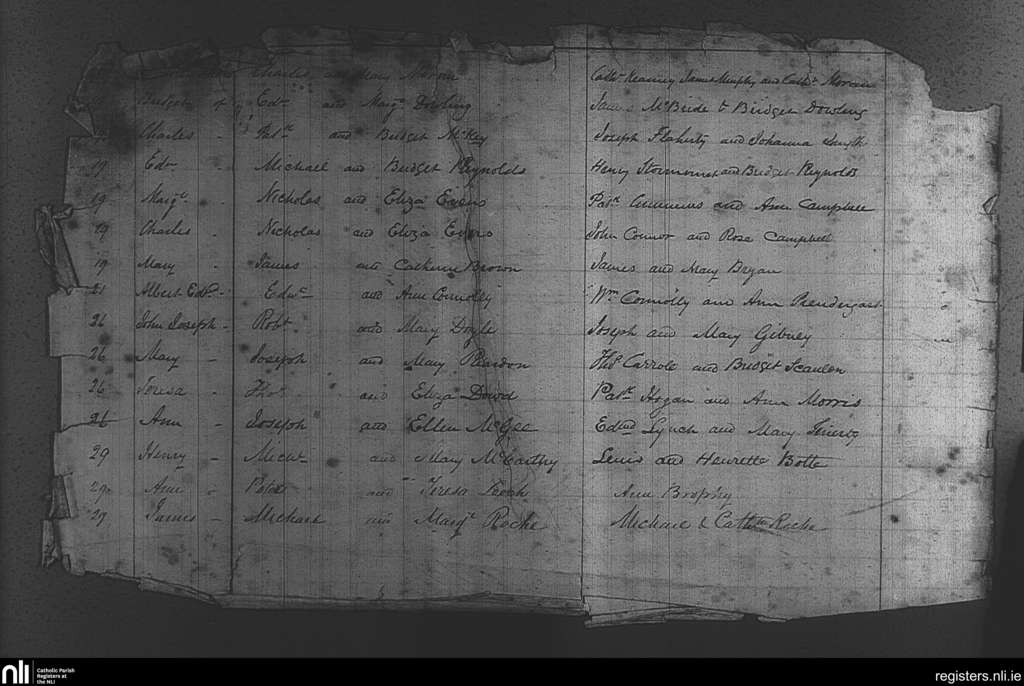 Charles and Mary Moran Cathn. Kearney James Murphy and Cathn. Moran
Bridget of Edn. and Margt. Dowling James McBride & Bridget Dowling
Charles - Patck. and Bridget McKey Joseph Flaherty and Johanna Smyth
19 Edn. - Michael and Bridget Reynolds Henry Stormount and Bridget Reynolds
19 Margt. - Nicholas and Eliza Evers Patk. and Ann Campbell
19 Charles - Nicholas and Eliza Evers John Connor and Rose Campbell
19 Mary - James and Catherine Brown James and Mary Bryan
21 Albert Edwd. - Edwd. and Ann Connolly Wm. Connolly and Ann Prendergast
26 John Joseph - Robt. and Mary Doyle Joseph and Mary Gibney
26 Mary - Joseph and Mary Reardon Thos. Carroll and Bridget Scanlon
26 Teresa - Thos. and Eliza Dowd Patk. Hogan and Ann Morris
26 Ann - Joseph and Ellen McGee Edmd. Lynch and Mary
29 Henry - and Mary McCarthy Lewis and Henrette Botte
29 Ann - Peter and Teresa Ann Brophy
29 James - Michael and Margt. Roche Michael & Cathn. Roche
nli Catholic Parish
Registers at
the NLI
registers.nli.ie